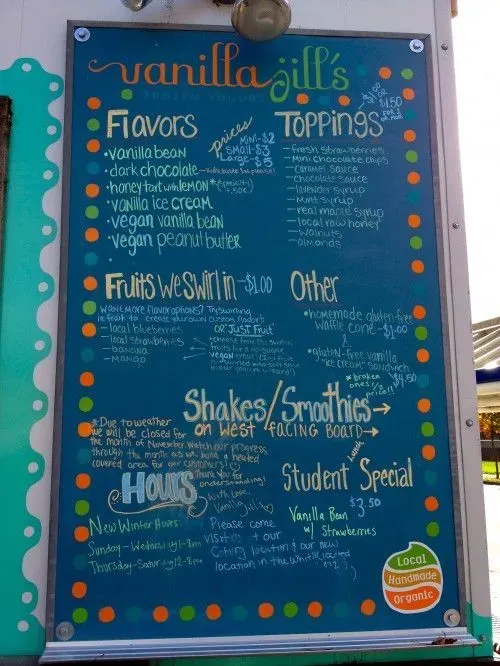 vanilla jill's
FROZEN YOGURT
Flavors
prices
MINI-$2
SMALL-$3
Large-$5
• vanilla bean
• dark chocolate
• honey tart with LEMON *(specialty)
• vanilla ice CREAM
• vegan vanilla bean
• vegan peanut butter
•
TOPPINGS
$1.50
- fresh strawberries
- Mini chocolate chips
- caramel sauce
- chocolate sauce
- lavender syrup
- mint syrup
- real maple syrup
- local raw honey
- walnuts
- almonds
Fruits We Swirl in -$1.00
WANT MORE flavor options? Try swirling
in fruit to create your own custom flavor!
- local blueberries
- local strawberries
- banana
- MANGO
OR "JUST FRUIT"
Other
• homemade gluten-free
waffle cone - $1.00
&
• gluten-free vanilla
"ice cream" sandwich
$4.50
* broken
ones 1/2
price!!
Shakes/Smoothies →
on West facing Board →
* Due to weather
we will be closed for
the month of November. Watch our progress
through the month as we build a heated
covered area for our customers! ☺
Thank you for
understanding!
with love,
Vanilla Jill's
Hours
New Winter Hours:
Sunday - Wednesday 1-8pm
Thursday - Saturday 12-8pm
Please come
visit our
location & our new
location in the
Student Lunch Special
$3.50
Vanilla Bean
w/ Strawberries
Local
Handmade
Organic